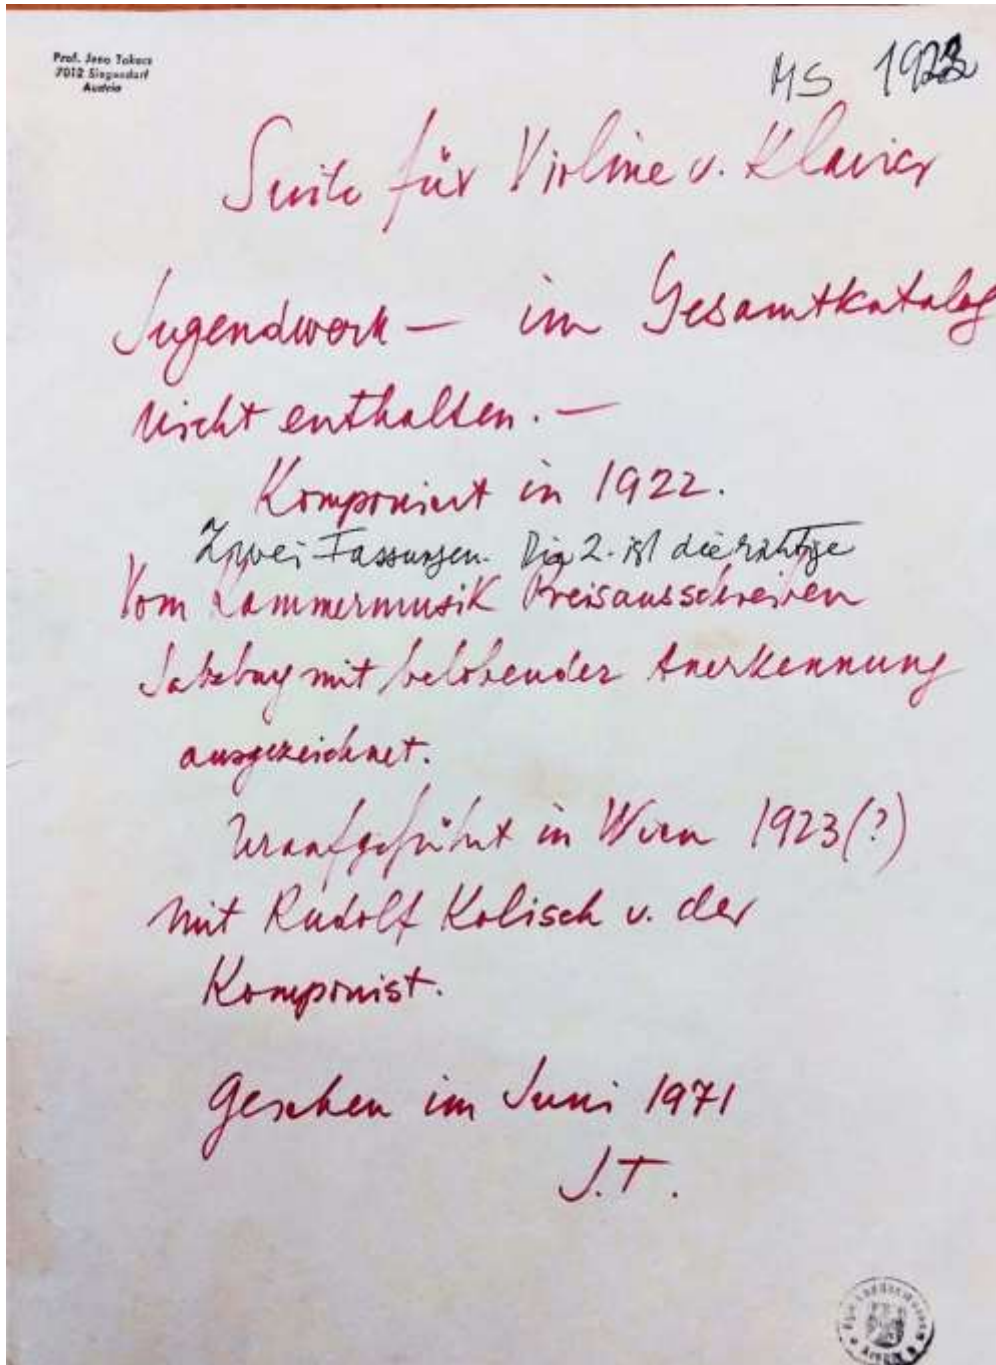 Prof. Jeno Takacs
7012 Siegendorf
Austria
MS 1922
Suite für Violine u. Klavier
Jugendwerk — im Gesamtkatalog
nicht enthalten. —
Komponiert in 1922.
Zwei Fassungen. Die 2. ist die richtige
Vom Kammermusik Preisausschreiben
Salzburg mit belobender Anerkennung
ausgezeichnet.
Uraufgeführt in Wien 1923 (?)
mit Rudolf Kolisch u. der
Komponist.
Gesehen im Juni 1971
J.T.